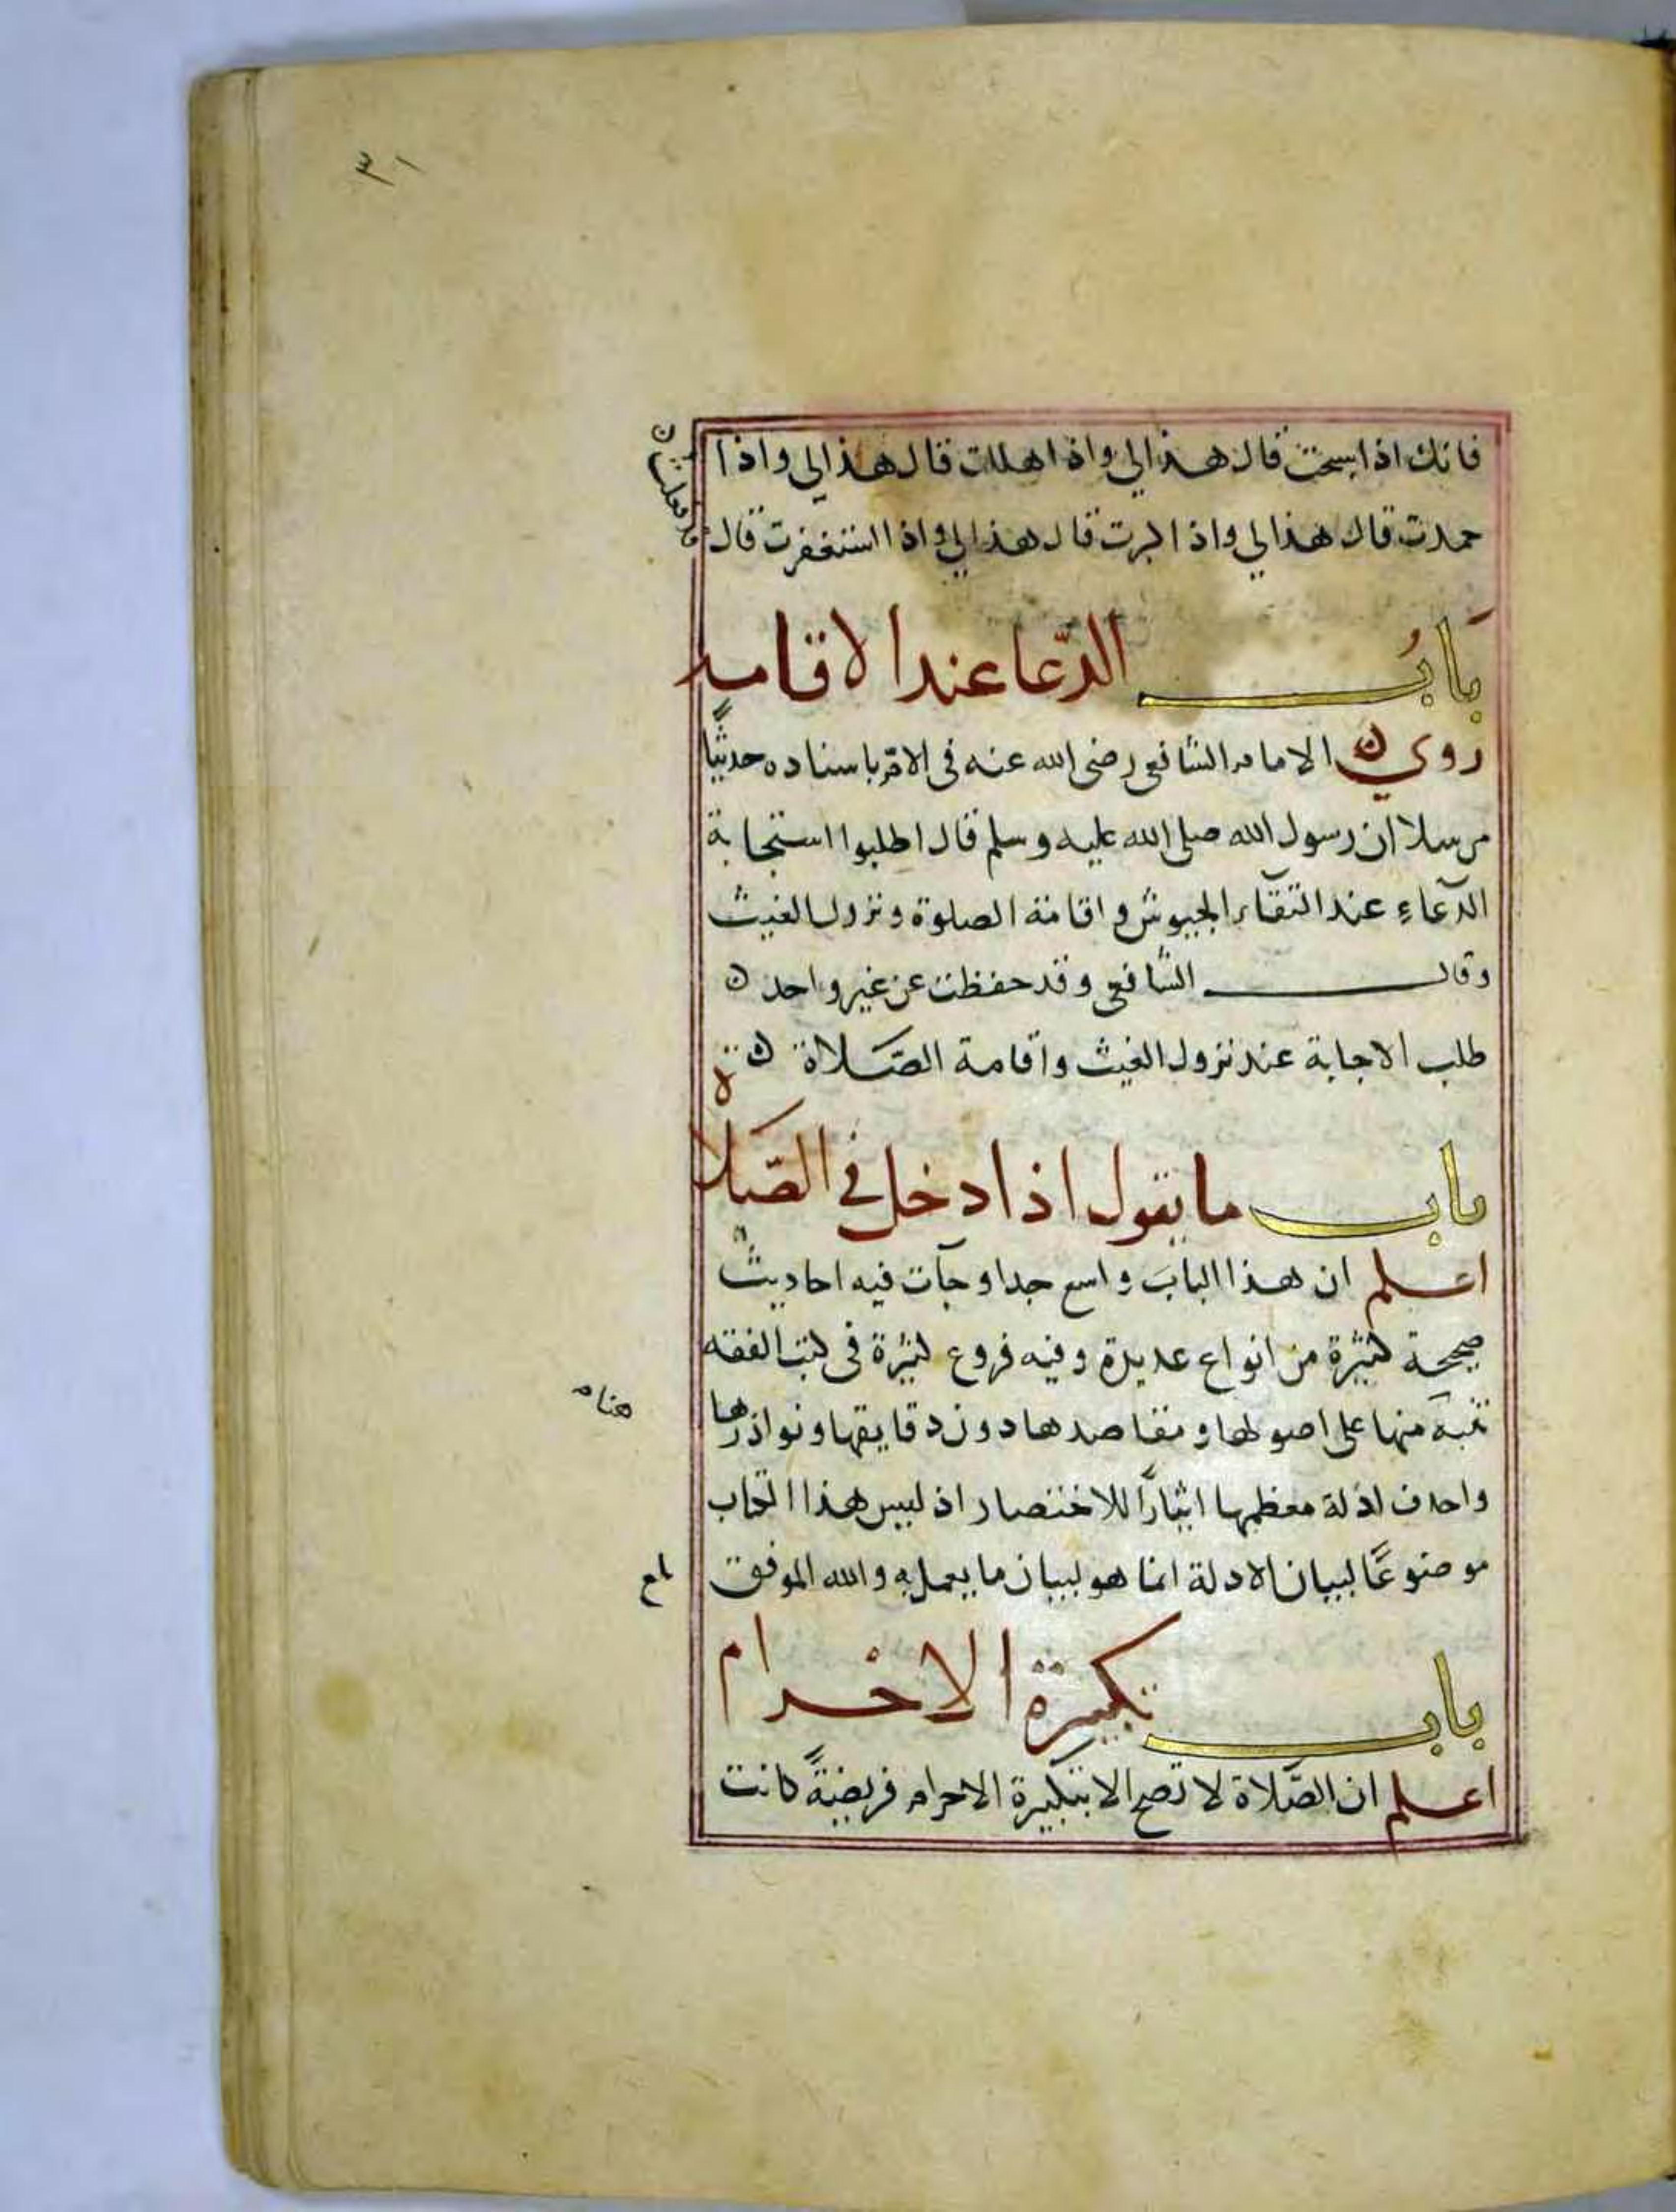 ٣١
فانك اذا سبحت قال هذا لي واذا هللت قال هذا لي واذا
حمدت قال هذا لي واذا كبرت قال هذا لي واذا استغفرت قال
قد فعلت
باب الدعا عند الاقامه
روي الامام الشافعي رضى الله عنه فى الامّ باسناده حديثًا
مرسلا ان رسول الله صلى الله عليه وسلم قال اطلبوا استجابة
الدّعاءِ عند التقاء الجيوش واقامة الصلوة ونزول الغيث
وقال الشافعي وقد حفظت عن غير واحد
طلب الاجابة عند نزول الغيث واقامة الصّلاة
باب ما يقول اذا دخل في الصّلاة
اعلم ان هذا الباب واسع جدا وجآت فيه احاديث
صحيحة كثيرة من انواع عديدة وفيه فروع كثيرة فى كتب الفقه
هنا
ننبه منها على اصولها ومقاصدها دون دقايقها ونوادرها
واحذف ادلة معظمها ايثارًا للاختصار اذ ليس هذا الكتاب
موضوعًا لبيان الادلة انما هو لبيان ما يعمل به والله الموفق
باب تكبيرة الاحرام
اعلم ان الصّلاة لا تصح الا بتكبيرة الاحرام فريضةً كانت